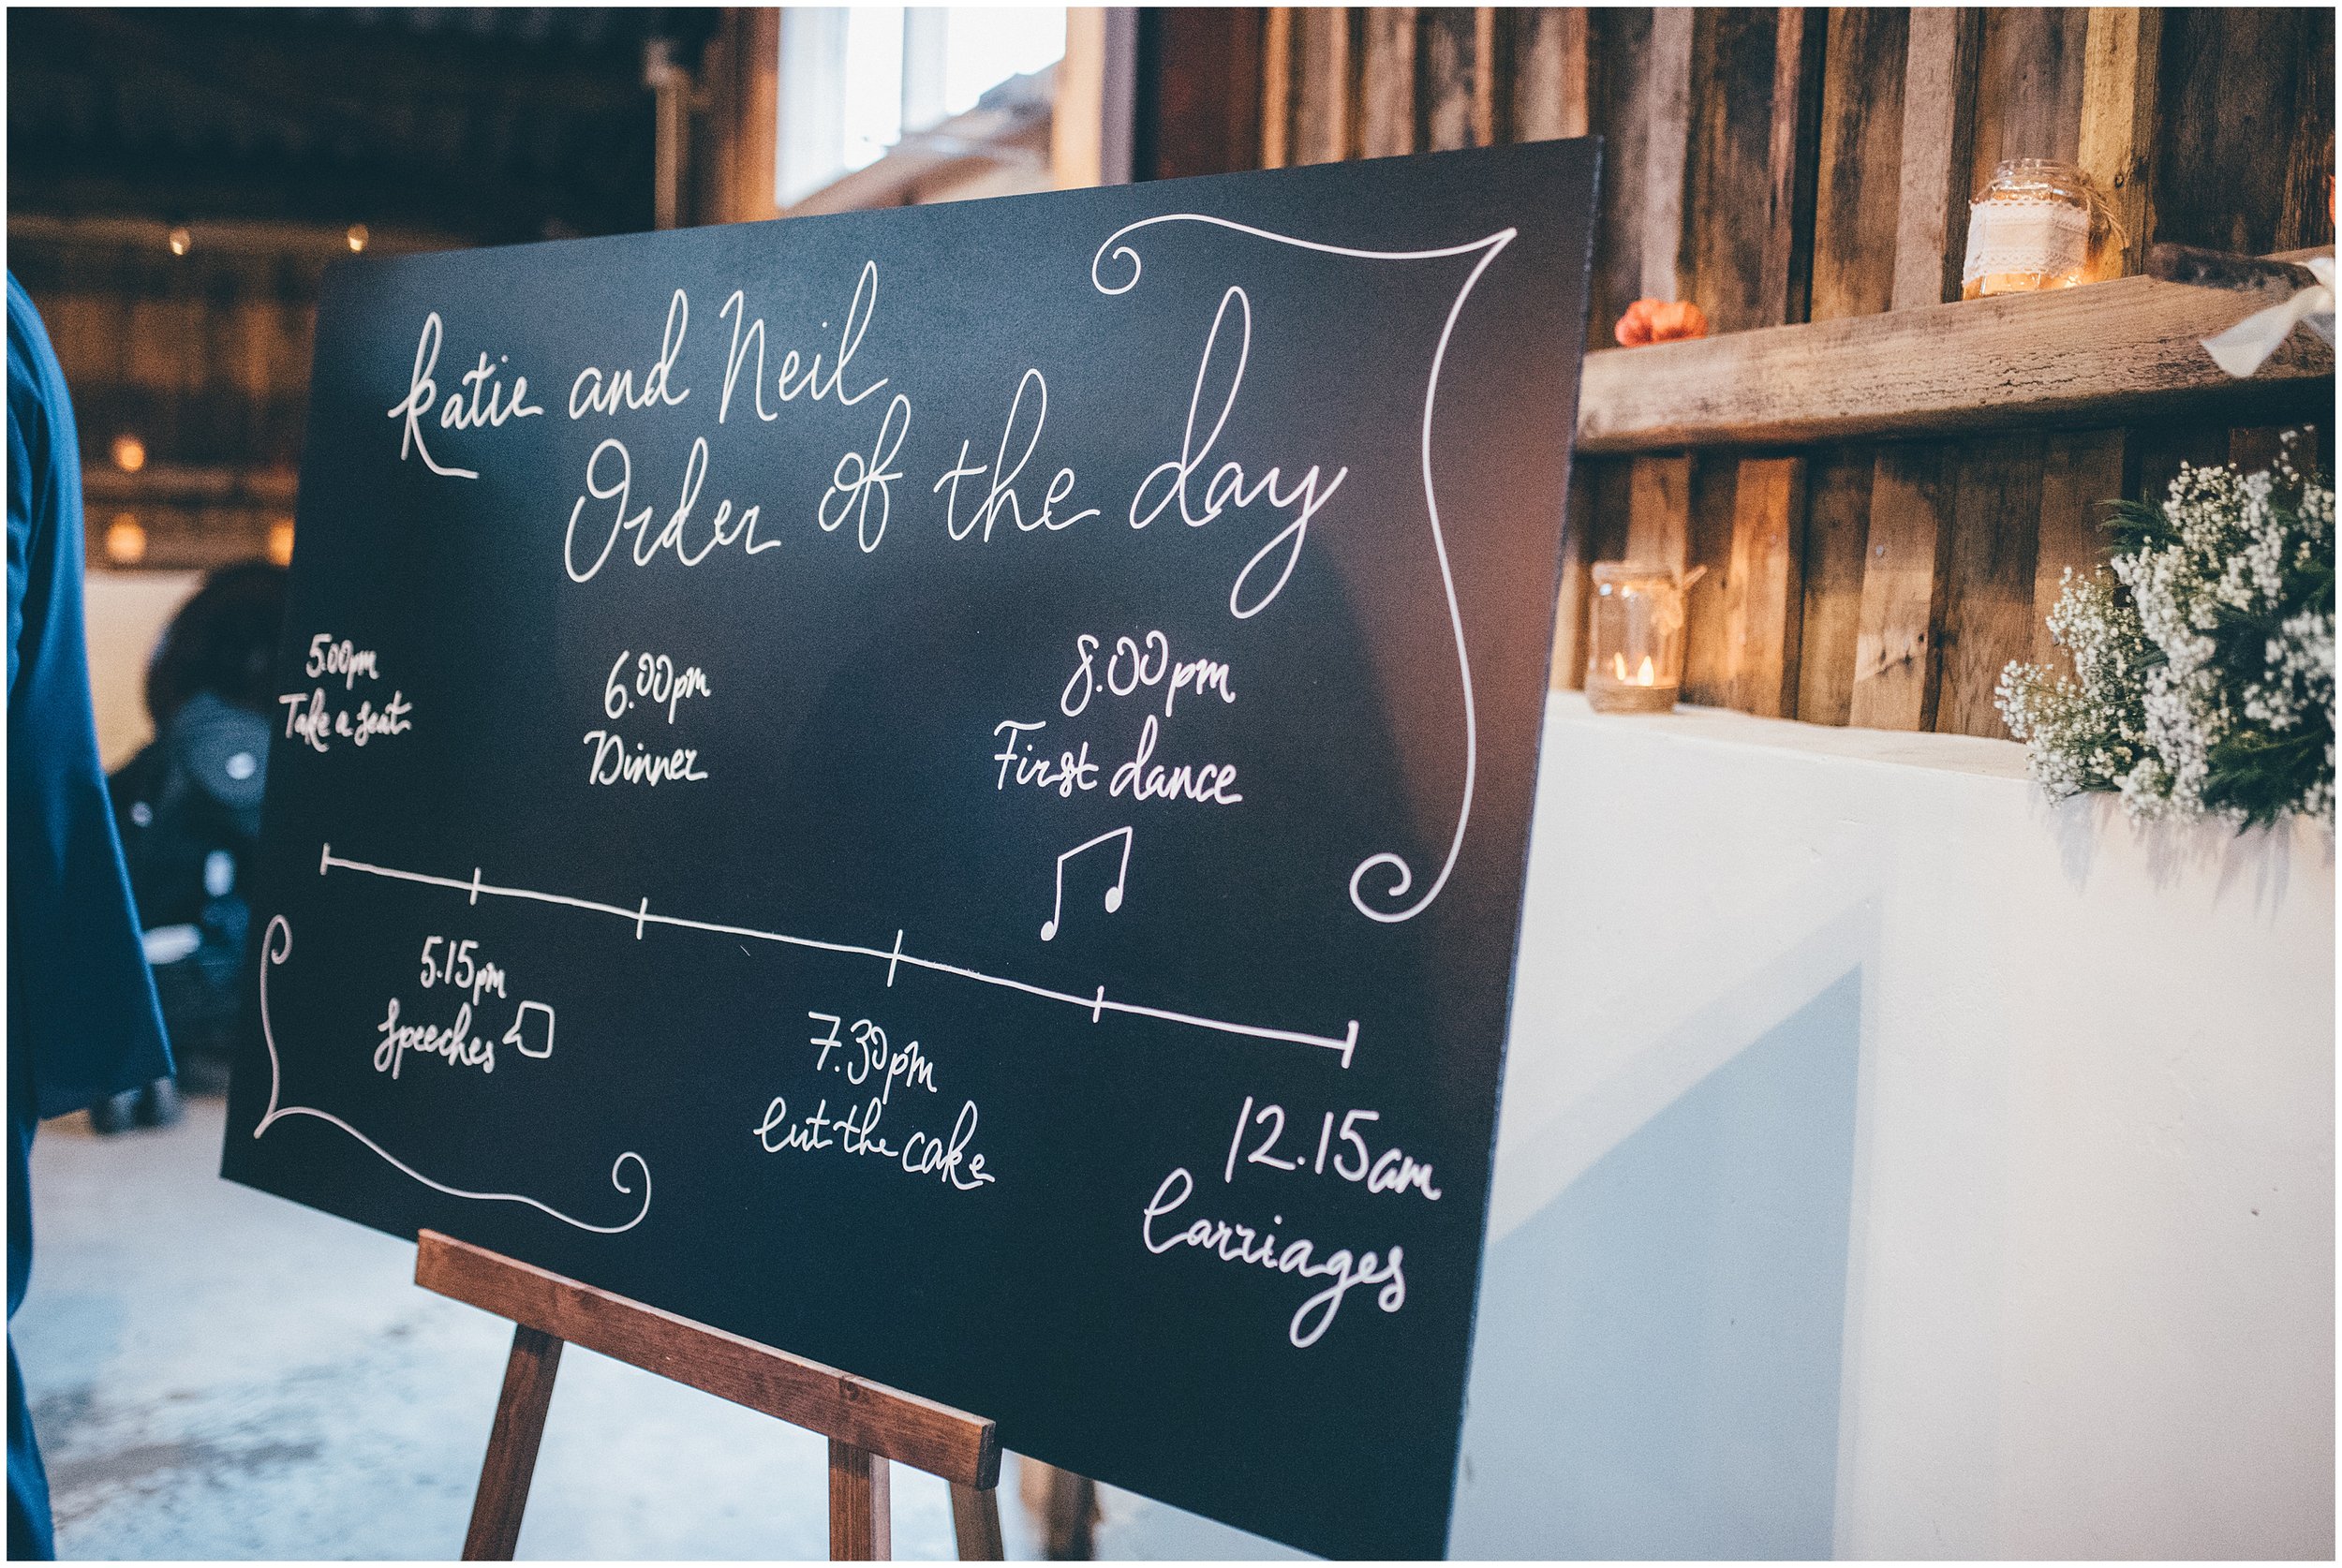 Katie and Neil
Order of the day
5.00pm
Take a seat
5.15pm
Speeches
6.00pm
Dinner
7.30pm
Cut the cake
8.00pm
First dance
12.15am
Carriages